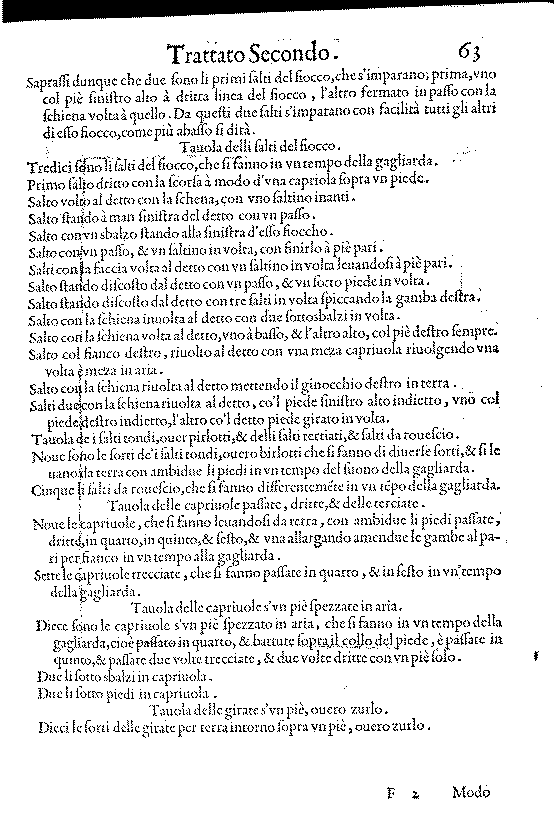 Trattato Secondo. 63
Saprassi dunque che due sono li primi salti del fiocco, che s'imparano; prima, vno
col piè sinistro alto à dritta linea del fiocco, l'altro fermato in passo con la
schiena volta à quello. Da questi due salti s'imparano con facilità tutti gli altri
di esso fiocco, come più abasso si dirà.
Tauola delli salti del fiocco.
Tredici sono li salti del fiocco, che si fanno in vn tempo della gagliarda.
Primo salto dritto con la scorsa à modo d'vna capriola sopra vn piede.
Salto volto al detto con la schena, con vno saltino inanti.
Salto stando à man sinistra del detto con vn passo.
Salto con vn sbalzo stando alla sinistra d'esso fioccho.
Salto con vn passo, & vn saltino in volta, con finirlo à piè pari.
Salti con la faccia volta al detto con vn saltino in volta leuandosi à piè pari.
Salto stando discosto dal detto con vn passo, & vn sotto piede in volta.
Salto stando discosto dal detto con tre salti in volta spiccando la gamba destra.
Salto con la schiena inuolta al detto con due sottosbalzi in volta.
Salto con la schiena volta al detto, vno à basso, & l'altro alto, col piè destro sempre.
Salto col fianco destro, riuolto al detto con vna meza capriuola riuolgendo vna
volta è meza in aria.
Salto con la schiena riuolta al detto mettendo il ginocchio destro in terra.
Salti due con la schiena riuolta al detto, co'l piede sinistro alto indietto, vno col
piede destro indietto, l'altro co'l detto piede girato in volta.
Tauola de i salti tondi, ouer pirlotti, & delli salti tertiati, & salti da rouescio.
Noue sono le sorti de i salti tondi, ouero birlotti che si fanno di diuerse sorti, & si le
uano da terra con ambidue li piedi in vn tempo del suono della gagliarda.
Cinque li salti da rouescio, che si fanno differentemẽte in vn tẽpo della gagliarda.
Tauola delle capriuole passate, dritte, & delle terciate.
Noue le capriuole, che si fanno leuandosi da terra, con ambidue li piedi passate,
dritte, in quarto, in quinto, & sesto, & vna allargando amendue le gambe al pa-
ri per fianco in vn tempo alla gagliarda.
Sette le capriuole trecciate, che si fanno passate in quarto, & in sesto in vn tempo
della gagliarda.
Tauola delle capriuole s'vn piè spezzate in aria.
Diece sono le capriuole s'vn piè spezzato in aria, che si fanno in vn tempo della
gagliarda, cioè passato in quarto, & battute sopra il collo del piede, è passate in
quinto, & passate due volte trecciate, & due volte dritte con vn piè solo.
Due li sotto sbalzi in capriuola.
Due li sotto piedi in capriuola.
Tauola delle girate s'vn piè, ouero zurlo.
Dieci le sorti delle girate per terra intorno sopra vn piè, ouero zurlo.
F 2 Modo